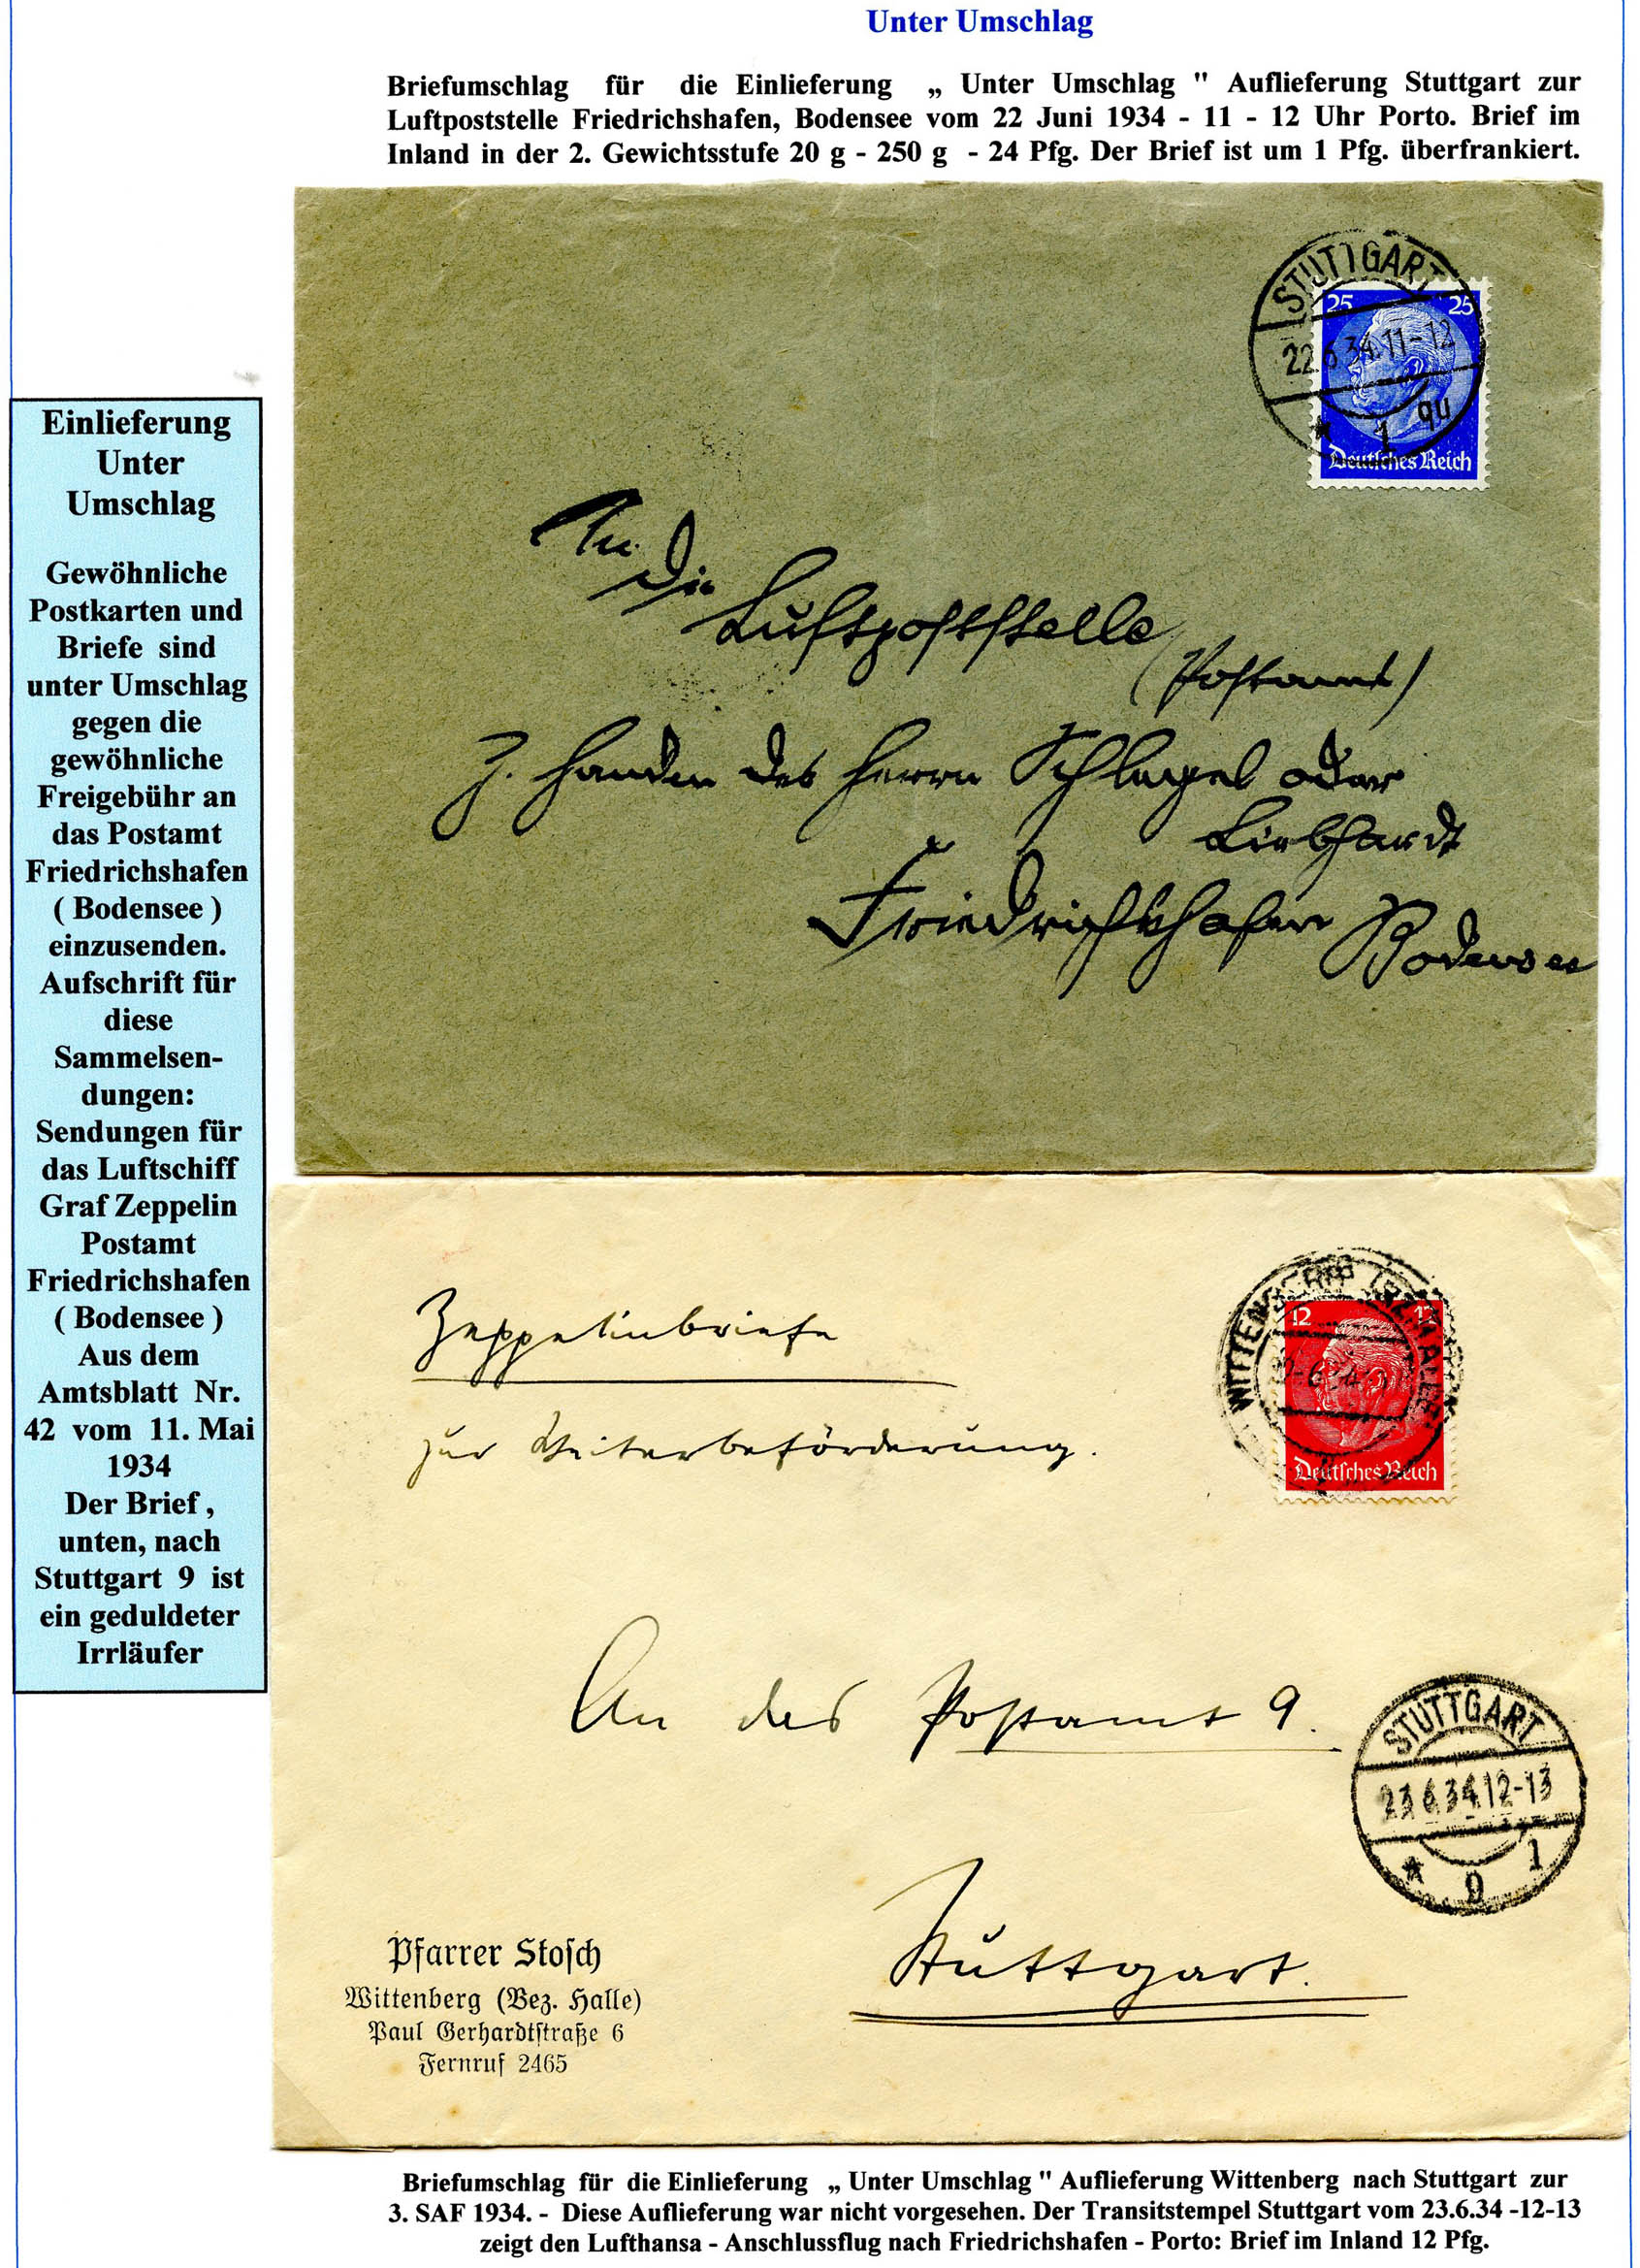 Unter Umschlag
Briefumschlag für die Einlieferung „ Unter Umschlag " Auflieferung Stuttgart zur
Luftpoststelle Friedrichshafen, Bodensee vom 22 Juni 1934 - 11 - 12 Uhr Porto. Brief im
Inland in der 2. Gewichtsstufe 20 g - 250 g - 24 Pfg. Der Brief ist um 1 Pfg. überfrankiert.
Einlieferung
Unter
Umschlag
Gewöhnliche
Postkarten und
Briefe sind
unter Umschlag
gegen die
gewöhnliche
Freigebühr an
das Postamt
Friedrichshafen
( Bodensee )
einzusenden.
Aufschrift für
diese
Sammelsen-
dungen:
Sendungen für
das Luftschiff
Graf Zeppelin
Postamt
Friedrichshafen
( Bodensee )
Aus dem
Amtsblatt Nr.
42 vom 11. Mai
1934
Der Brief ,
unten, nach
Stuttgart 9 ist
ein geduldeter
Irrläufer
STUTTGART
25 25
22.6.34.11-12
* 1 9u
Deutsches Reich
An
die
Luftpoststelle
(Postamt)
z. Handen des Herrn Schlegel oder
Liebhardt
Friedrichshafen Bodensee
WITTENBERG (BZ. HALLE)
12 12
Deutsches Reich
Zeppelinbriefe
zur Weiterbeförderung.
An das Postamt 9.
STUTTGART
23.6.34.12-13
* 9 1
Stuttgart.
Pfarrer Stosch
Wittenberg (Bez. Halle)
Paul Gerhardtstraße 6
Fernruf 2465
Briefumschlag für die Einlieferung „ Unter Umschlag " Auflieferung Wittenberg nach Stuttgart zur
3. SAF 1934. - Diese Auflieferung war nicht vorgesehen. Der Transitstempel Stuttgart vom 23.6.34 -12-13
zeigt den Lufthansa - Anschlussflug nach Friedrichshafen - Porto: Brief im Inland 12 Pfg.